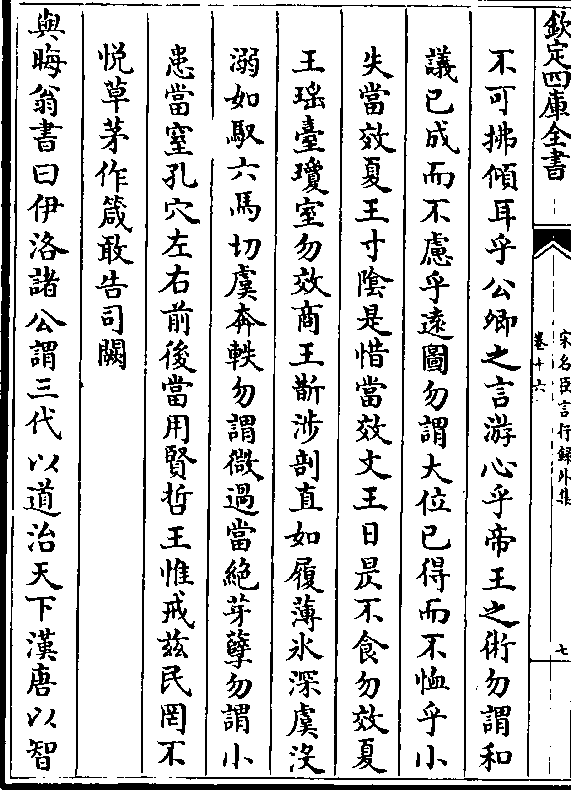 欽定四庫全書
宋名臣言行録外集
卷十六
七
不可拂傾耳乎公卿之言游心乎帝王之術勿謂和
議已成而不慮乎遠圖勿謂大位已得而不恤乎小
失當效夏王寸隂是惜當效文王日昃不食勿效夏
王瑶臺瓊室勿效商王斮涉剖直如履薄氷深虞沒
溺如馭六馬切虞奔軼勿謂微過當絶芽孽勿謂小
患當窒孔穴左右前後當用賢哲王惟戒兹民罔不
悦草茅作箴敢告司闕
與晦翁書曰伊洛諸公謂三代以道治天下漢唐以智